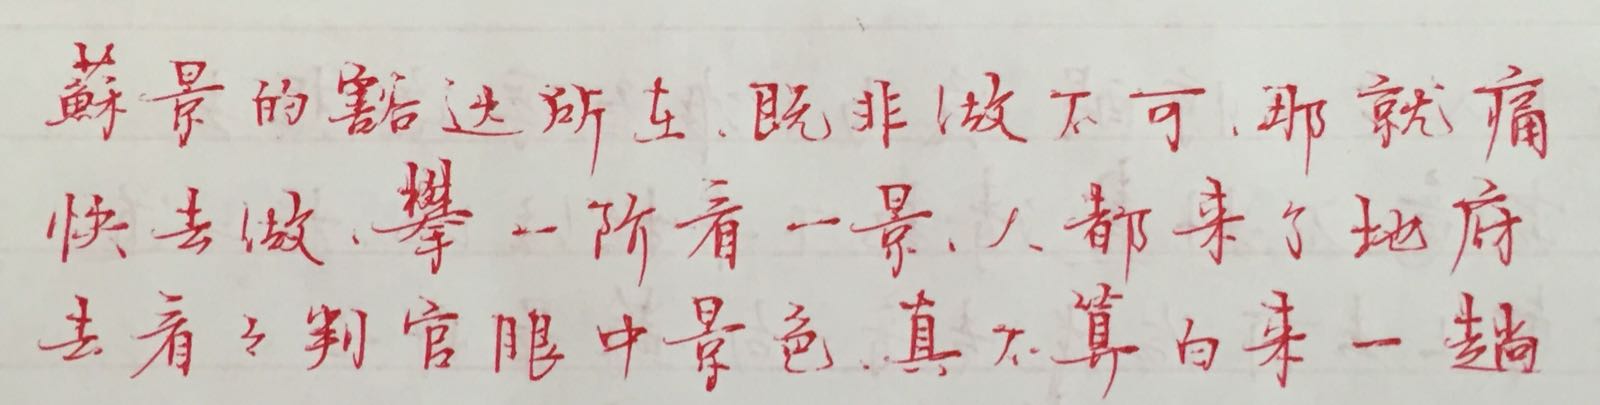 蘇景的豁达所在.既非做不可.那就痛
快去做.攀一阶看一景.人都来了地府
去看々判官眼中景色.真不算白来一趟